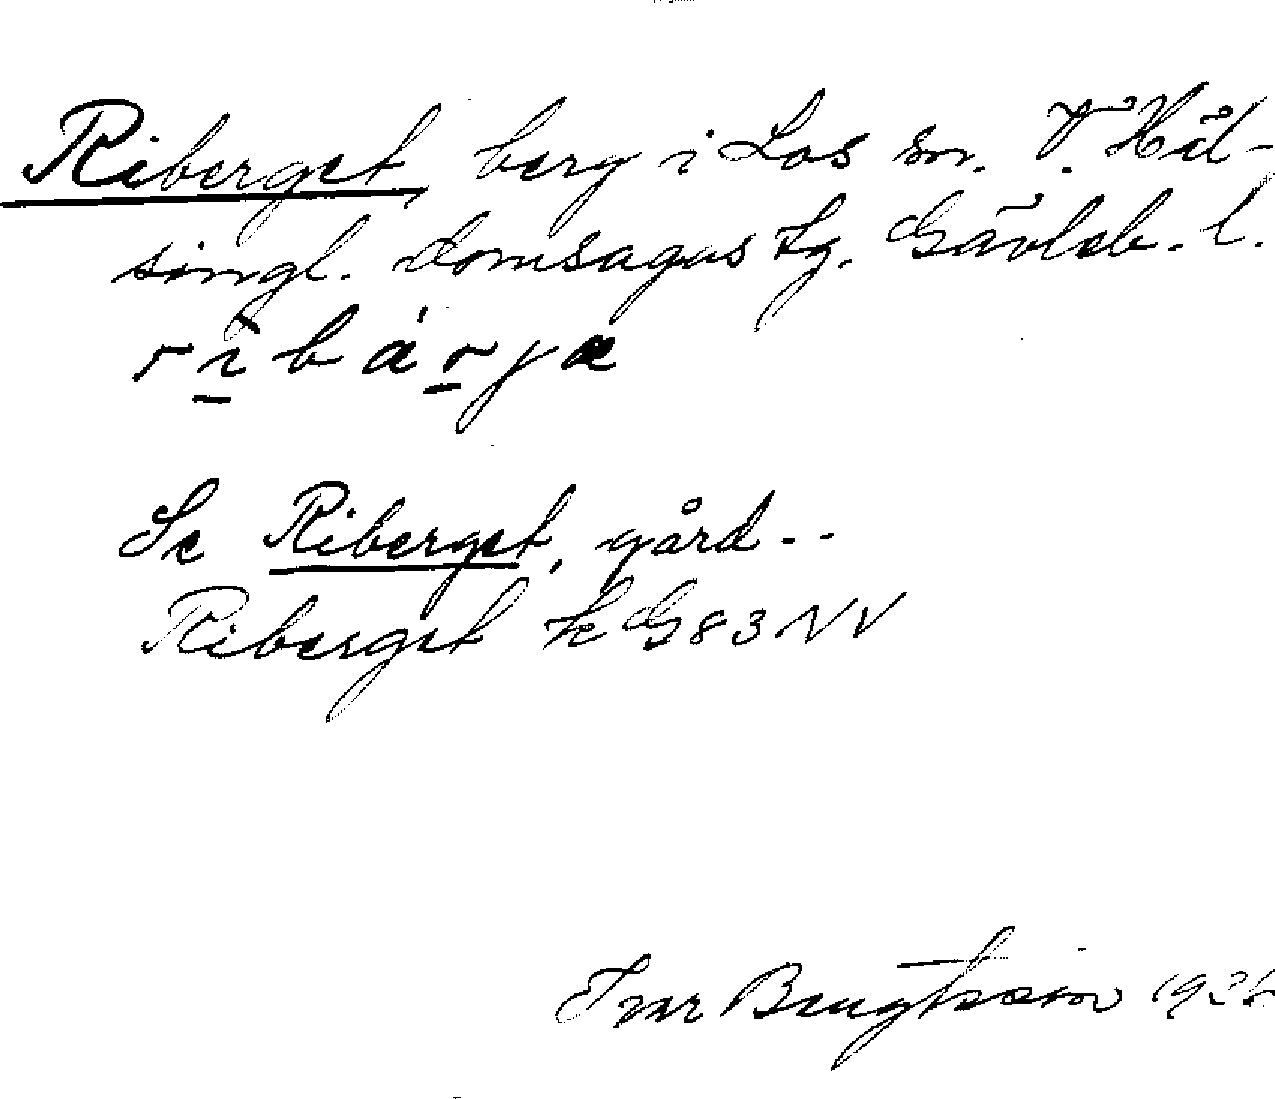 Riberget, berg i Los sn. V. Häl-
singl. domsagas tg. Gävleb. l.
rìbárjæ
Se Riberget, gård --
Riberget k G83NV
Ivar Bengtsson